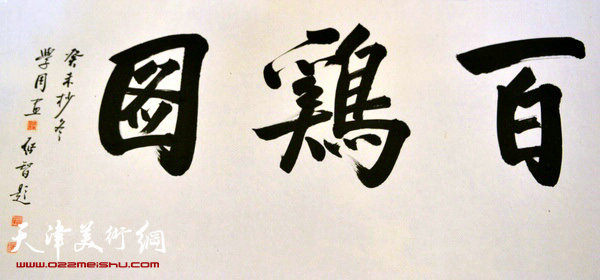 百鷄圖
癸未杪冬
學周画
題
天津美術網
www.022meishu.com